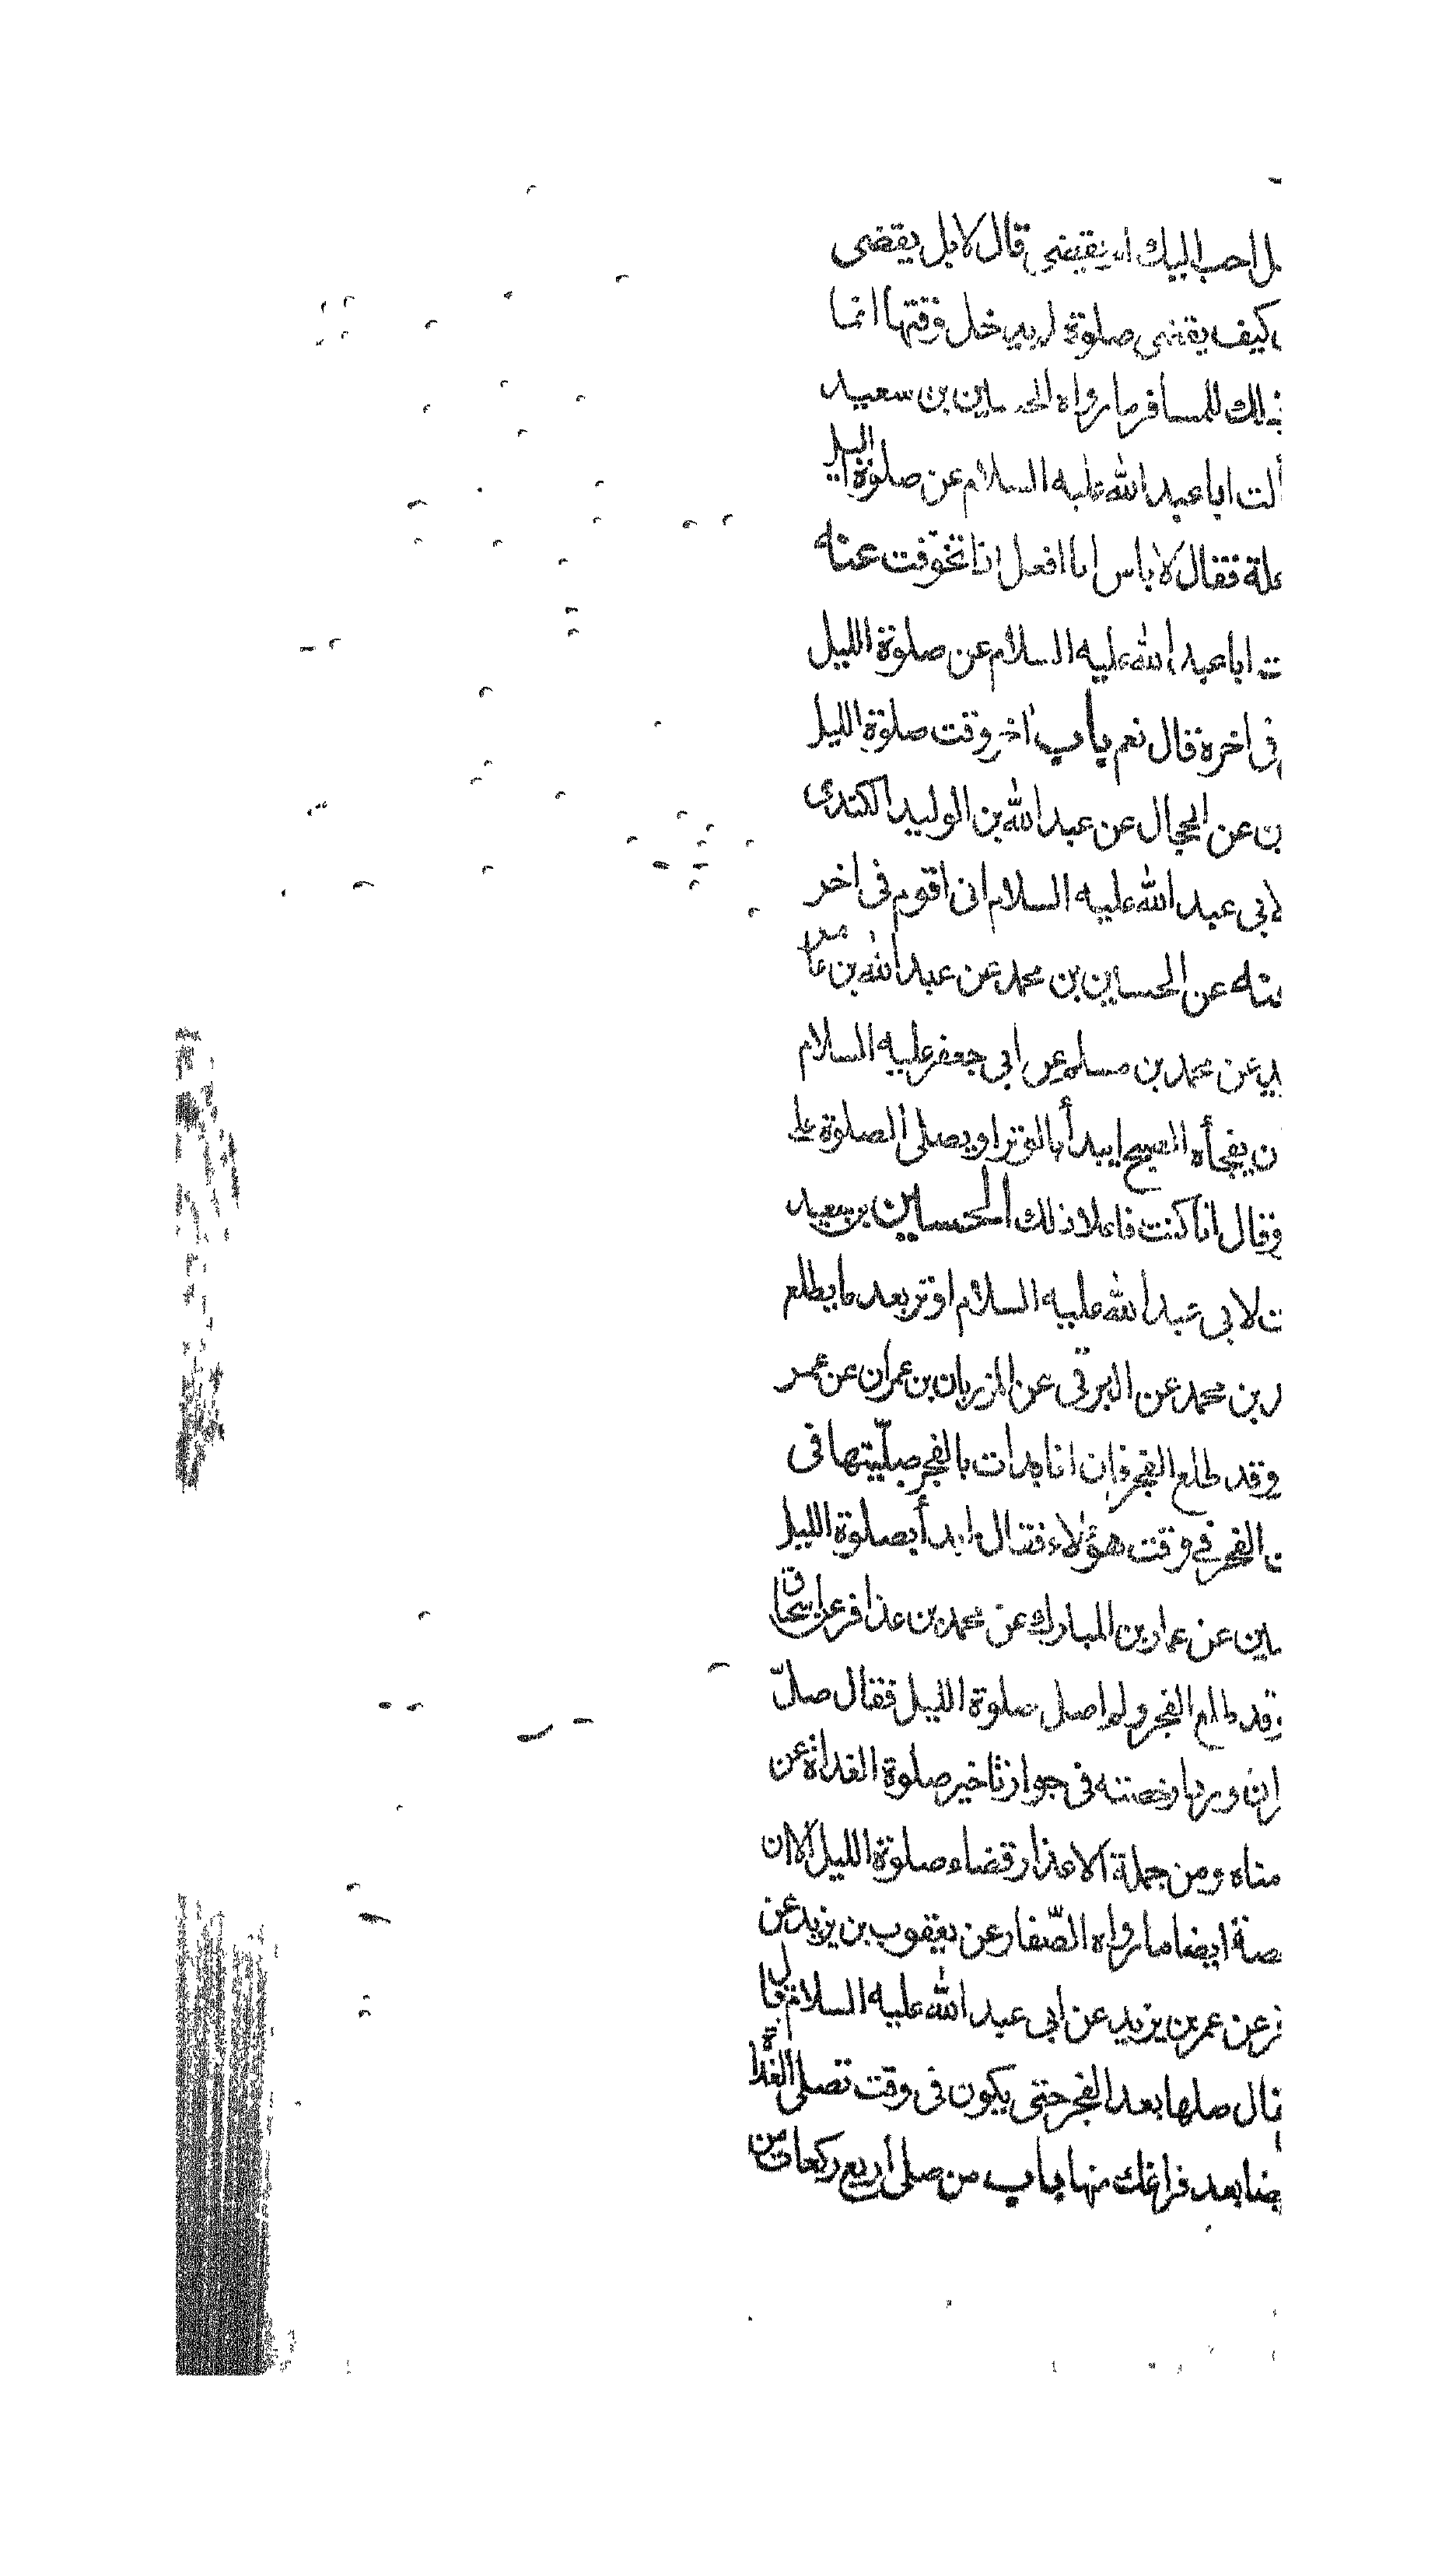 احب اليك ام يقضى قال لا بل يقضى
كيف يقضى صلوة لم يدخل وقتها انما
ذلك للمسافر ما رواه الحسين بن سعيد
ألت ابا عبد الله عليه السلام عن صلوة الليل
علة فقال لا باس انا افعل اذا تخوفت عنه
ت ابا عبد الله عليه السلام عن صلوة الليل
فى اخره قال نعم باب اخر وقت صلوة الليل
ن عن الحجال عن عبد الله بن الوليد الكندى
لابى عبد الله عليه السلام انى اقوم فى اخر
عنه عن الحسين بن محمد عن عبد الله بن عامر
يد عن محمد بن مسلم عن ابى جعفر عليه السلام
ن يفجأه الصبح ايبدأ بالوتر او يصلى الصلوة على
وقال انا كنت فاعلا ذلك الحسين بن سعيد
ت لابى عبد الله عليه السلام اوتر بعد ما يطلع
بن محمد عن البرقى عن المرزبان بن عمران عن عمر
وقد طلع الفجر فان انا بدات بالفجر صليتها فى
ن الفجر فى وقت هؤلاء فقال ابدأ بصلوة الليل
سين عن عمار بن المبارك عن محمد بن عذافر عن اسحاق
وقد طلع الفجر ولم اصل صلوة الليل فقال صل
ان وردها رخصته فى جواز تاخير صلوة الغداة عن
مناه ومن جملة الاعذار قضاء صلوة الليل الا ان
صة ايضا ما رواه الصفار عن يعقوب بن يزيد عن
عن عمر بن يزيد عن ابى عبد الله عليه السلام قال
قال صلها بعد الفجر حتى يكون فى وقت تصلى الغداة
ضا بعد فراغك منها باب من صلى اربع ركعات من